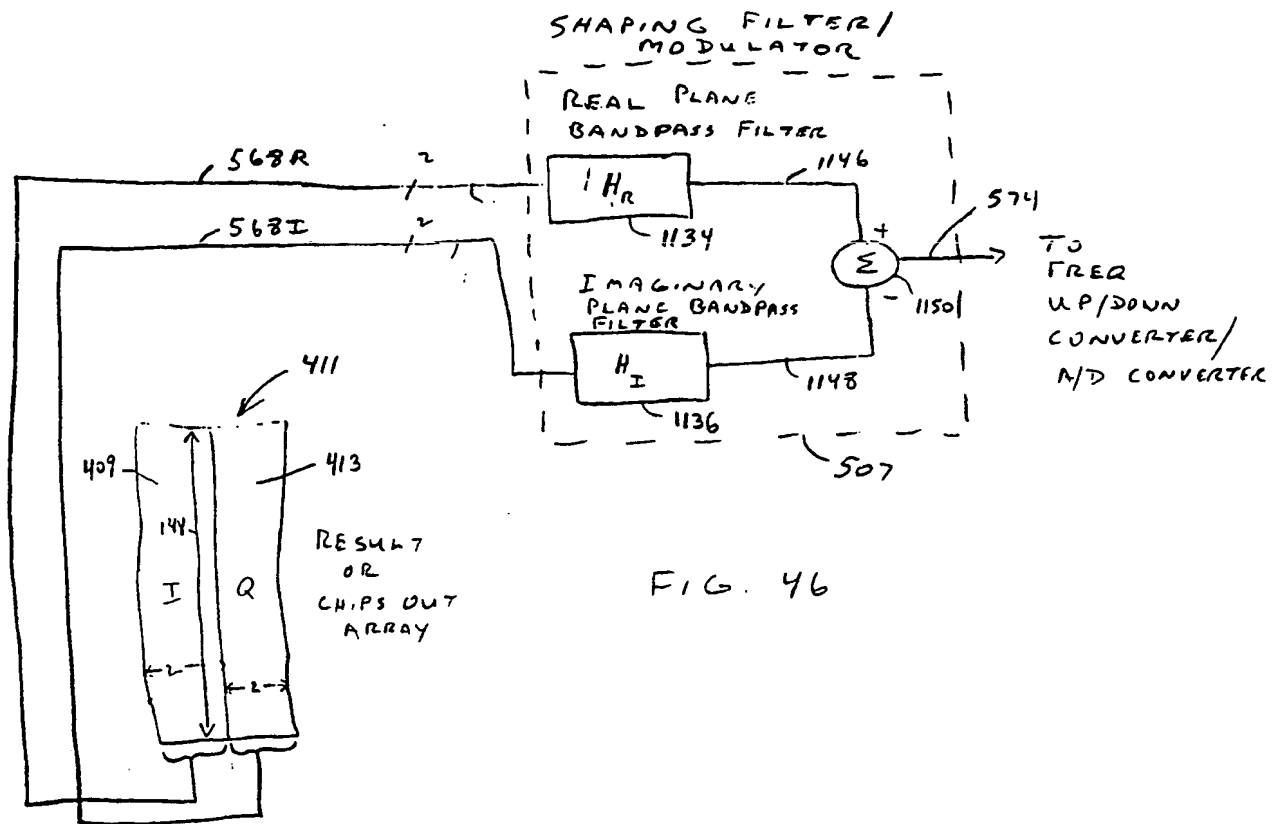 SHAPING FILTER/
MODULATOR
REAL PLANE
BANDPASS FILTER
568R
2
HR
1134
1146
568I
2
574
+
Σ
-
1150
TO
FREQ
UP/DOWN
CONVERTER/
A/D CONVERTER
IMAGINARY
PLANE BANDPASS
FILTER
HI
1136
1148
507
411
409
413
144
I
Q
2
2
RESULT
OR
CHIPS OUT
ARRAY
FIG. 46